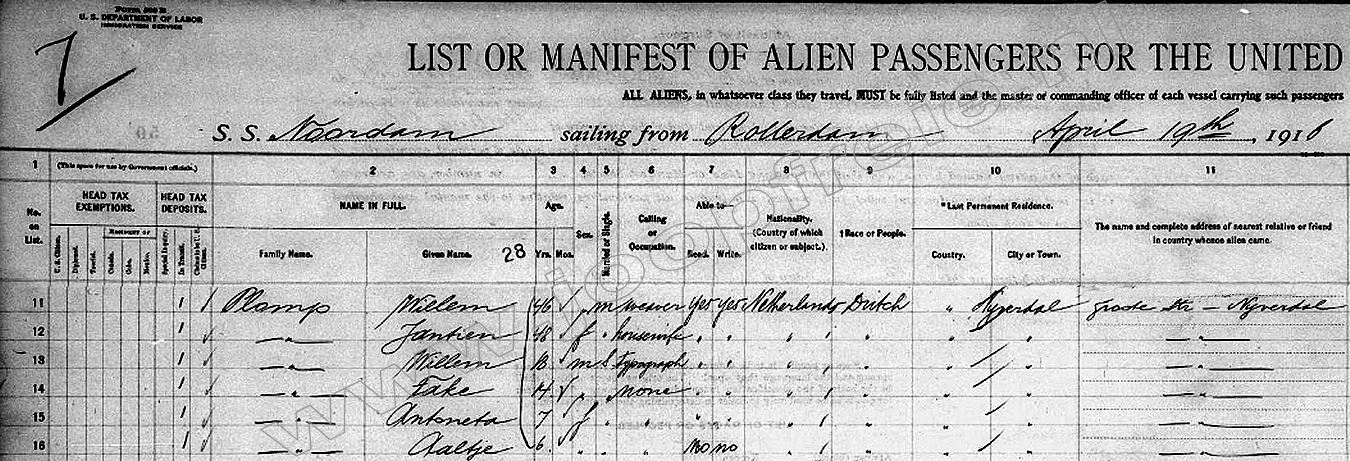 Form 500 B
U. S. DEPARTMENT OF LABOR
IMMIGRATION SERVICE
7
LIST OR MANIFEST OF ALIEN PASSENGERS FOR THE UNITED
ALL ALIENS, in whatsoever class they travel, MUST be fully listed and the master or commanding officer of each vessel carrying such passengers
S. S. Noordam sailing from Rotterdam April 19th, 1916
1 (This space for use by Government officials.) 2 3 4 5 6 7 8 9 10 11
No. on List. HEAD TAX EXEMPTIONS. HEAD TAX DEPOSITS. NAME IN FULL. Age. Sex. Married or Single. Calling or Occupation. Able to— Nationality. (Country of which citizen or subject.) † Race or People. *Last Permanent Residence. The name and complete address of nearest relative or friend in country whence alien came.
U. S. Citizen. Diplomat. Tourist. Canada. Cuba. Mexico. Special Inquiry. In Transit. Family Name. Given Name. 28 Yrs. Mos. Read. Write. Country. City or Town.
11 1 1 Plomp Willem 46 ✓ " m weaver yes yes Netherlands Dutch " Nyverdal Nyverdal
12 " Jantien 48 ✓ f " housewife " " " " " " "
13 " Willem ✓ m S typograph " " " " " "
14 " Fake 14 ✓ " " None " " " " " "
15 " Antoneta 7 f " " " " " " " "
16 " Aaltje 6 " " " no no " " " "
www.joopfrele.nl